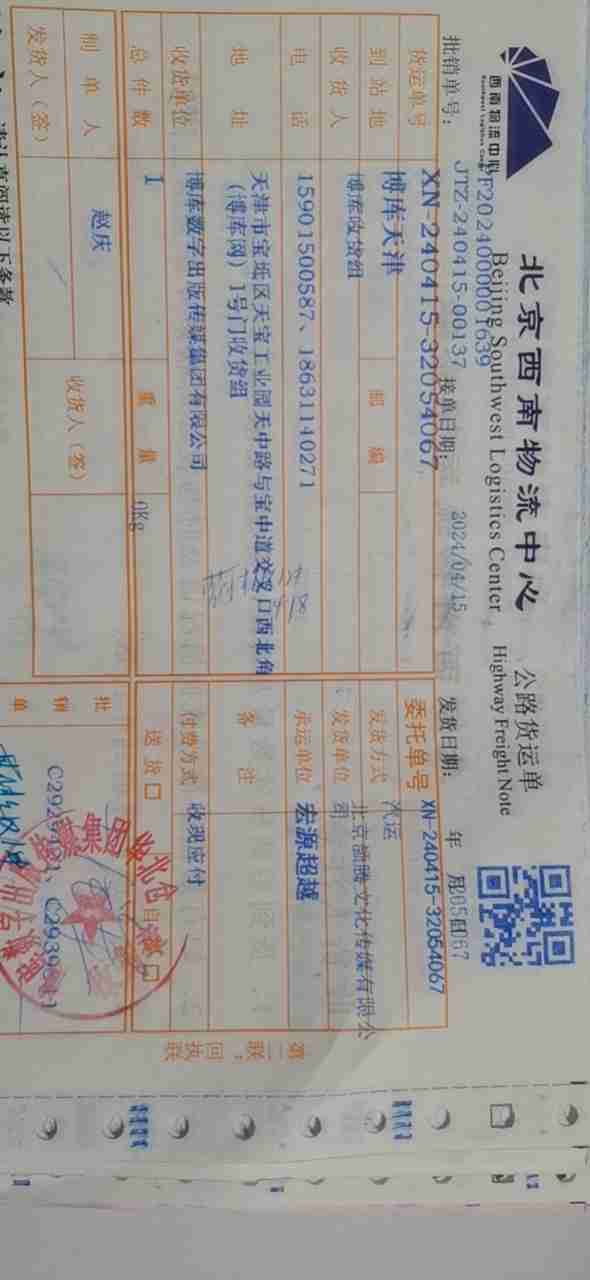 北京西南物流中心
Beijing Southwest Logistics Center
公路货运单
Highway Freight Note
西南物流中心
Southwest Logistics Center
PF2024000001639
批销单号: JTZ-240415-00137 接单日期: 2024/04/15 发货日期: 年
货运单号 XN-240415-32054067 委托单号 XN-240415-32054067
到站地 博库天津 邮编 发货方式 汽运
收货人 博库收货组 发货单位 北京 腾文化传媒有限公
司
电话 15901500587、18631140271 承运单位 宏源超越
地址 天津市宝坻区天宝工业园天中路与宝中道交叉口西北角
(博库网) 1号门收货组
备注
收货单位 博库数字出版传媒集团有限公司 付费方式 收现应付
总件数 1 重量 0Kg 送货口 自 口
制单人 赵庆 收货人(签) 批销单
发货人(签)
第二联:回执联
集团华北仓
请认真阅读以下条款